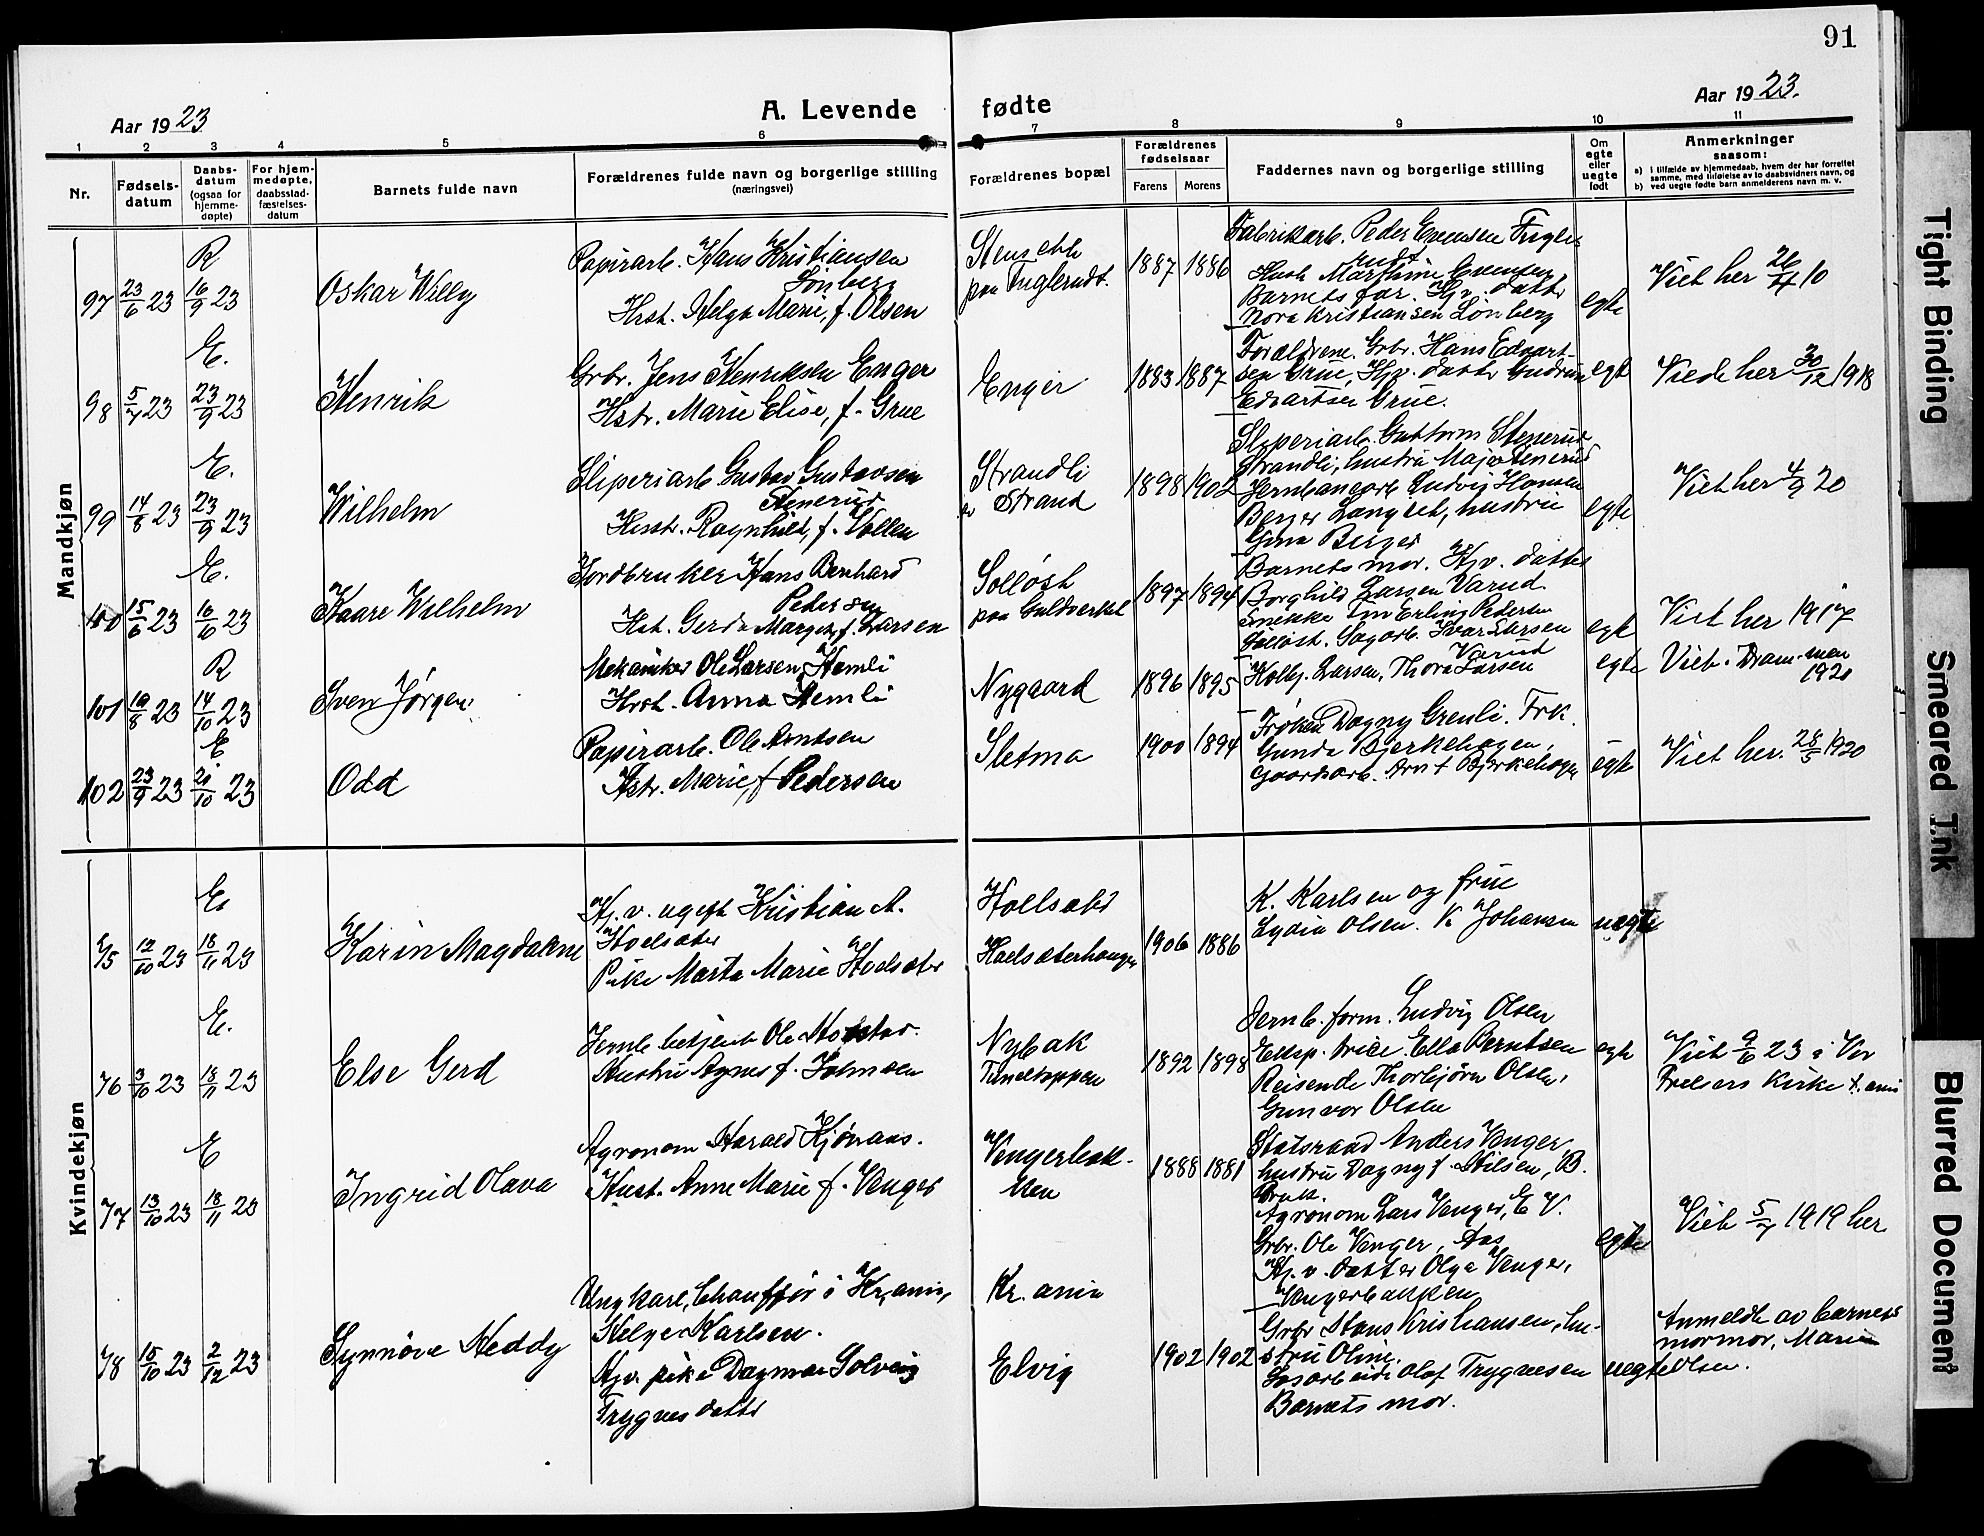 91
Aar 1923
A. Levende fødte
Aar 1923.
1 2 3 4 5 6 7 8 9 10 11
Nr.
Fødsels-
datum
Daabs-
datum
(ogsaa for
hjemme-
døpte)
For hjem-
medøpte,
daabsstad-
fæstelses-
datum
Barnets fulde navn
Forældrenes fulde navn og borgerlige stilling
(næringsvei)
Forældrenes bopæl
Forældrenes
fødselsaar
Farens Morens
Faddernes navn og borgerlige stilling
Om
egte
eller
uegte
født
Anmerkninger
saasom:
a) i tilfælde av hjemmedaab, hvem der har forrettet
samme, med tilføielse av to daabsvidners navn, og
b) ved uegte fødte barn anmelderens navn m. v.
Mandkjøn
R
97 23/6 23 16/9 23
Oskar Willy
Papirarb. Hans Kristiansen
Lönberg
Hust. Helga Marie, f. Olsen
paa Fuglerudt.
1887 1886
Fabrikarb. Peder Evensen Fugle-
rudt
Hust. Marthine Evensen
Barnets far. Hjv. datter
Nora Kristiansen Lönberg
egte
Viet her 26/4 10
E.
98 5/7 23 23/9 23
Henrik
Grbr. Jens Henriksen Enger
Hstr. Marie Elise, f. Grue
Enger
1883 1887
Forældrene. Grbr. Hans Edvart-
sen Grue, Hjv. datter Gudrun
Edvartsen Grue.
egte
Viede her 30/12 1918
E.
99 14/8 23 23/9 23
Wilhelm
Sliperiarb Gustav Gustavsen
Stenerud
Hustr. Ragnhild, f. Vollen
Strandli
Strand
1898 1902
Sliperiarb. Guttorm Stenerud
Strandli, hustru Maja Stenerud
Jernbanearb Ludvig Hansen
Berger Langset, hustru
Gina Berger
egte
Viet her 4/9 20
E.
100 15/6 23 16/6 23
Kaare Wilhelm
Jordbruker Hans Bernhard
Pedersen
Hst. Gerda Margit, f. Larsen
Solløst
paa Guldverket
1897 1894
Barnets mor. Hjv. datter
Borghild Larsen Varud
Erling Pedersen
Solløst. Sagarb. Ivar Larsen
Varud
egte
Viet her 1917
R
101 19/8 23 14/10 23
Sven Jørgen
Mekaniker Ole Larsen Hemli
Hust. Anna Hemli
Nygaard
1896 1895
Kolbj. Larsen, Thora Larsen
egte
Viet. Dram-men
1920
E
102 23/9 23 21/10 23
Odd
Papirarb. Ole Arntsen
Hstr. Marie f Pedersen
Sletma
1900 1894
Frøken Dagny Grenli. Frk.
Gunda Bjerkehagen,
Gaardsarb. Arnt Bjerkehagen
egte
Viet her. 28/5 1920
Kvindekjøn
E
75 12/10 23 18/11 23
Karin Magdalene
Hj. v. ugift Kristian A.
Hoelsæter
Pike Marta Marie Hoelsæter
Hoelsæter
Hoelsæterhaugen
1906 1886
K. Karlsen og frue
Lydia Olsen. K Johansen
uegte
E.
76 3/10 23 18/11 23
Else Gerd
Jernb. betjent Ole Hofstad.
Hustru Agnes f. Johnsen
Nybak
Tuneltoppen
1892 1898
Jernb. form. Ludvig Olsen
Eksp. trice. Ella Berntsen
Reisende Thorbjørn Olsen,
Gunvor Olsen
egte
Viet 9/6 23 i Vor
Frelsers Kirke Kr.ania
E
77 13/10 23 18/11 23
Ingrid Olava
Agronom Harald Kjönaas.
Hust. Anne Marie f. Venger
Vengerbak-
ken
1888 1881
Statsraad Anders Venger,
hustru Dagny f. Nilsen, B.
Bruk.
Agronom Lars Venger, E V.
Grbr. Ole Venger, Aas
Hj. v. datter Olga Venger,
Vengerbakken
egte
Viet 5/7 1919 her
78 15/10 23 2/12 23
Synnöve Heddy
Ungkarl, Chauffør i Kr.ania,
Helge Karlsen.
Hjv. pike Dagmar Solveig
Trygvesdatter
Kr. ania
Elvig
1902 1902
Grbr Hans Kristiansen, hu-
stru Oline.
Olaf Trygvesen
Barnets mor.
uegte
Anmeldt av barnets
mormor, Marie
Olsen.
Tight Binding
Smeared Ink
Blurred Document